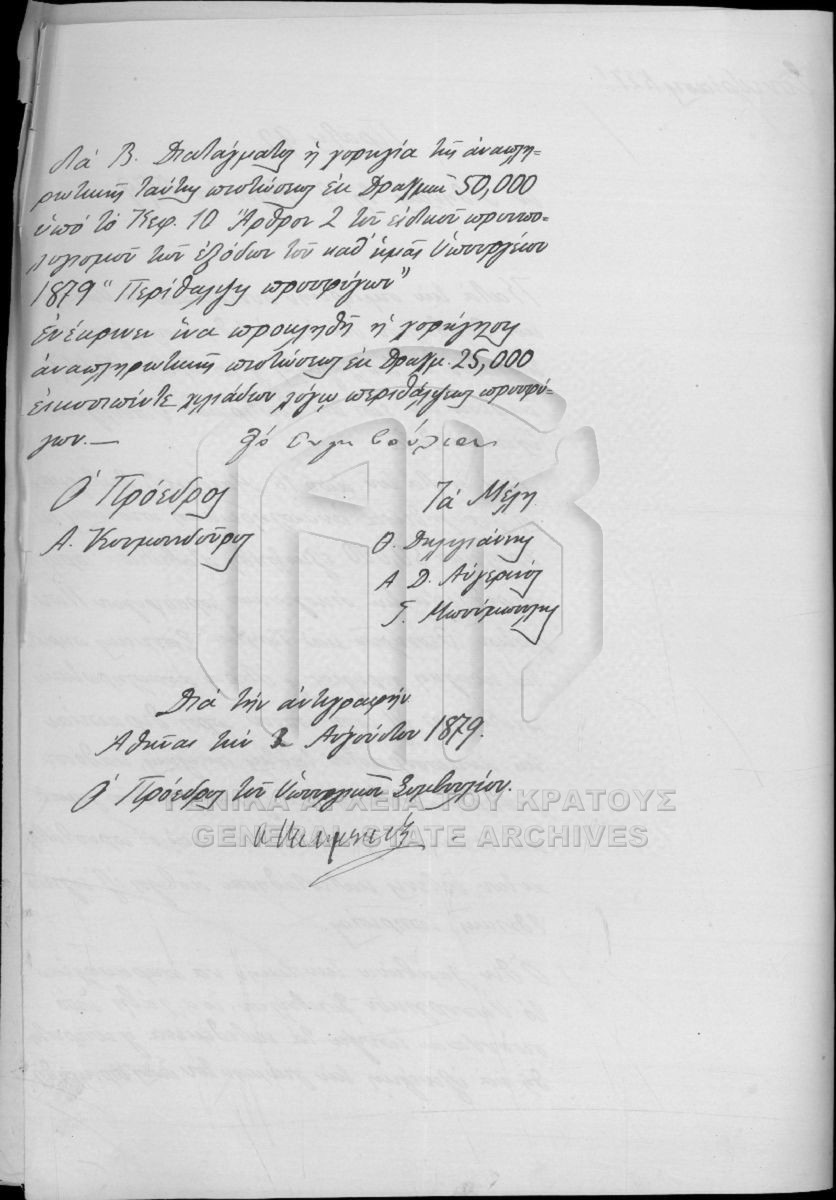 διά Β. Διατάγματος ἡ χορηγία τῆς ἀναπλη-
ρωτικῆς ταύτης πιστώσεως ἐκ Δραχμῶν 50,000
ὑπό τό Κεφ. 10 Ἄρθρον 2 τοῦ εἰδικοῦ προϋπο-
λογισμοῦ τῶν ἐξόδων τοῦ καθ' ἡμᾶς Ὑπουργείου
1879 "Περίθαλψις προσφύγων"
ἐνέκρινεν ἵνα προκληθῇ ἡ χορήγησις
ἀναπληρωτικῆς πιστώσεως ἐκ Δραχμ. 25,000
εἰκοσιπέντε χιλιάδων λόγῳ περιθάλψεως προσφύ-
γων.— Τό Συμβούλιον
Ὁ Πρόεδρος Τά Μέλη
Α. Κουμουνδοῦρος Θ. Δηλιγιάννης
Α Δ. Αὐγερινός
Γ. Μπούμπουλης
Διά τήν ἀντιγραφήν
Ἀθῆναι τήν 2 Αὐγούστου 1879.
Ὁ Πρόεδρος τοῦ Ὑπουργικοῦ Συμβουλίου.
ΓΕΝΙΚΑ ΑΡΧΕΙΑ ΤΟΥ ΚΡΑΤΟΥΣ
GENERAL STATE ARCHIVES